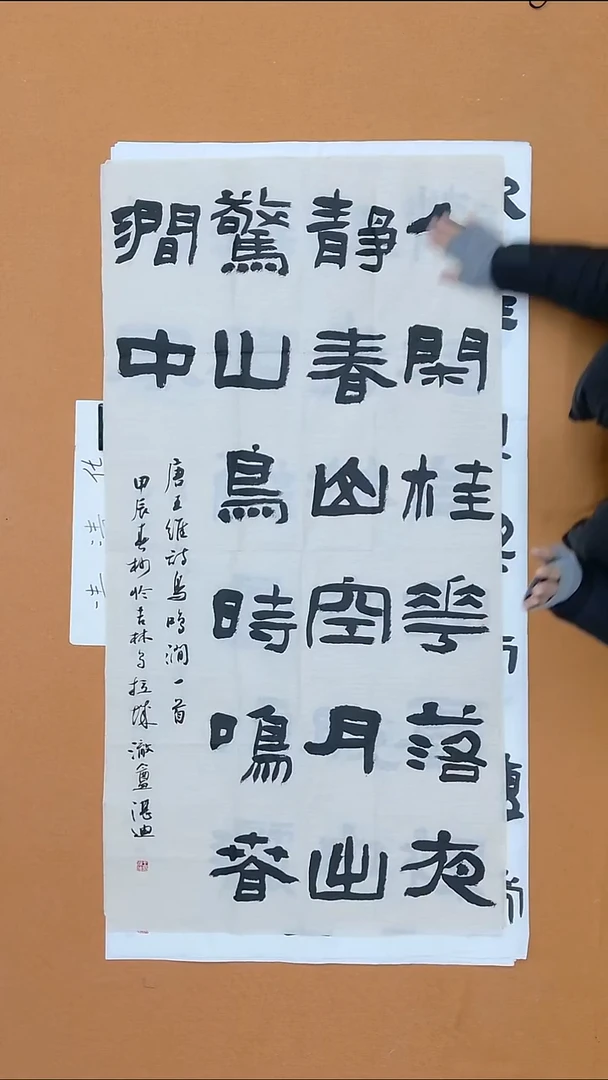 閑桂華落夜
靜春山空月出
驚山鳥時鳴春
澗中
唐王維詩鳥鳴澗一首
甲辰春初於吉林乌拉城澂盦湛迪